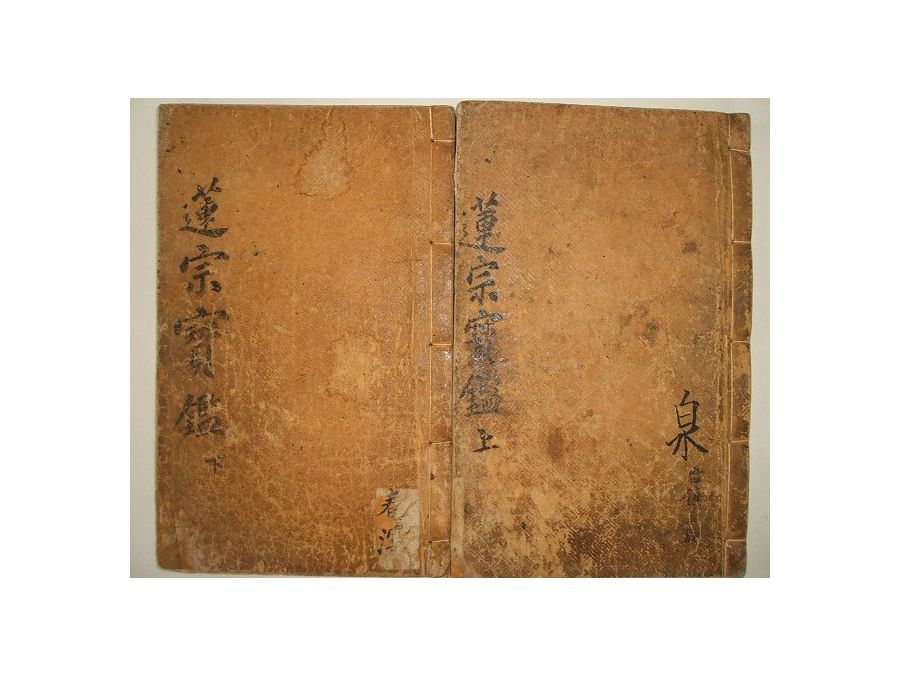 蓮宗寶鑑
上
泉
蓮宗寶鑑
下
春